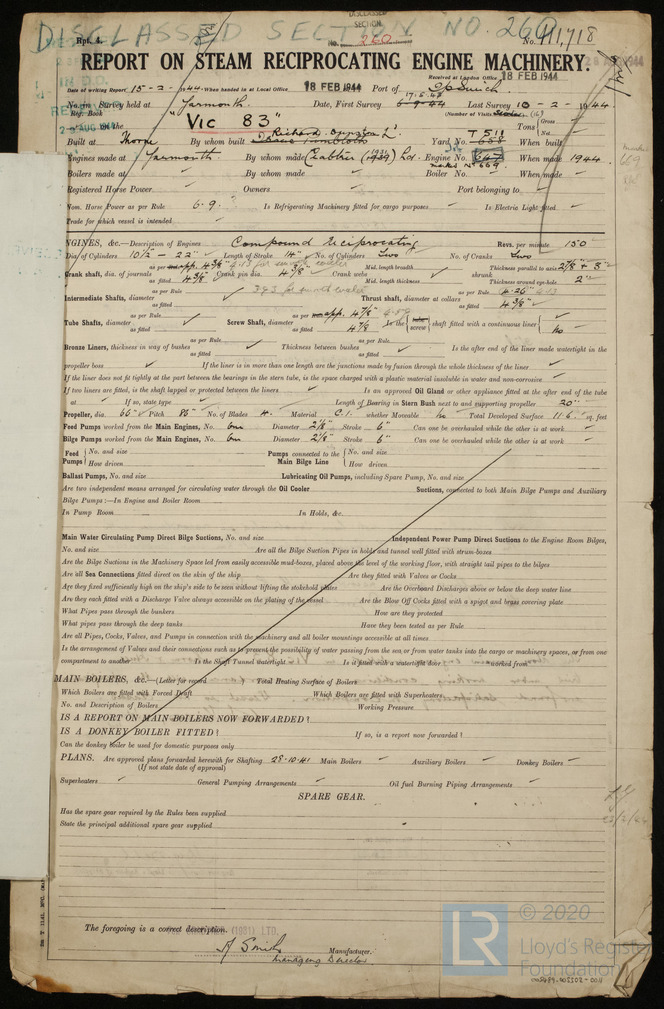 DISCLASSED SECTION NO. 260
DISCLASSED
SECTION
No. 260
Rpt. 4.
No. 111,718
REPORT ON STEAM RECIPROCATING ENGINE MACHINERY.
Received at London Office 18 FEB 1944
Date of writing Report 15-2-1944 When handed in at Local Office 18 FEB 1944 Port of Ipswich
No. in Survey held at Yarmouth. Date, First Survey 17.5.43 Last Survey 10-2-1944
Reg. Book (Number of Visits
on the "VIC 83" Tons Gross
Net
Built at Thorne By whom built Richard Dunston Ld. Yard No. T511 When built
Engines made at Yarmouth. By whom made Crabtree (1931) Ld. Engine No. When made 1944
Boilers made at By whom made Boiler No. When made
Registered Horse Power Owners Port belonging to
Nom. Horse Power as per Rule 69. Is Refrigerating Machinery fitted for cargo purposes Is Electric Light fitted
Trade for which vessel is intended
ENGINES, &c.—Description of Engines Compound Reciprocating Revs. per minute 150
Dia. of Cylinders 10½ - 22" Length of Stroke 14" No. of Cylinders Two No. of Cranks Two
Crank shaft, dia. of journals as per Rule as fitted 4⅜" Crank pin dia. 4⅜" Crank webs Mid. length breadth Mid. length thickness shrunk Thickness parallel to axis 2⅞" + 3" Thickness around eye-hole 2"
Intermediate Shafts, diameter as per Rule as fitted Thrust shaft, diameter at collars as per Rule 4.26 as fitted 4⅜"
Tube Shafts, diameter as per Rule as fitted Screw Shaft, diameter as per app. 4⅞" as fitted 4⅞ Is the tube screw shaft fitted with a continuous liner no
Bronze Liners, thickness in way of bushes as per Rule as fitted Thickness between bushes as per Rule as fitted Is the after end of the liner made watertight in the
propeller boss If the liner is in more than one length are the junctions made by fusion through the whole thickness of the liner
If the liner does not fit tightly at the part between the bearings in the stern tube, is the space charged with a plastic material insoluble in water and non-corrosive
If two liners are fitted, is the shaft lapped or protected between the liners Is an approved Oil Gland or other appliance fitted at the after end of the tube
at If so, state type Length of Bearing in Stern Bush next to and supporting propeller 20"
Propeller, dia. 66" Pitch 85" No. of Blades 4. Material C.I. whether Moveable no Total Developed Surface 11.6 sq. feet
Feed Pumps worked from the Main Engines, No. One Diameter 2⅛" Stroke 6" Can one be overhauled while the other is at work
Bilge Pumps worked from the Main Engines, No. One Diameter 2⅛" Stroke 6" Can one be overhauled while the other is at work
Feed Pumps No. and size Pumps connected to the Main Bilge Line No. and size
How driven How driven
Ballast Pumps, No. and size Lubricating Oil Pumps, including Spare Pump, No. and size
Are two independent means arranged for circulating water through the Oil Cooler Suctions, connected to both Main Bilge Pumps and Auxiliary
Bilge Pumps:—In Engine and Boiler Room
In Pump Room In Holds, &c.
Main Water Circulating Pump Direct Bilge Suctions, No. and size Independent Power Pump Direct Suctions to the Engine Room Bilges,
No. and size Are all the Bilge Suction Pipes in holds and tunnel well fitted with strum-boxes
Are the Bilge Suctions in the Machinery Space led from easily accessible mud-boxes, placed above the level of the working floor, with straight tail pipes to the bilges
Are all Sea Connections fitted direct on the skin of the ship Are they fitted with Valves or Cocks
Are they fixed sufficiently high on the ship's side to be seen without lifting the stokehold plates Are the Overboard Discharges above or below the deep water line
Are they each fitted with a Discharge Valve always accessible on the plating of the vessel Are the Blow Off Cocks fitted with a spigot and brass covering plate
What Pipes pass through the bunkers How are they protected
What pipes pass through the deep tanks Have they been tested as per Rule
Are all Pipes, Cocks, Valves, and Pumps in connection with the machinery and all boiler mountings accessible at all times
Is the arrangement of Valves and their connections such as to prevent the possibility of water passing from the sea or from water tanks into the cargo or machinery spaces, or from one
compartment to another Is the Shaft Tunnel watertight Is it fitted with a watertight door worked from
MAIN BOILERS, &c.—(Letter for record Total Heating Surface of Boilers
Which Boilers are fitted with Forced Draft Which Boilers are fitted with Superheaters
No. and Description of Boilers Working Pressure
IS A REPORT ON MAIN BOILERS NOW FORWARDED?
IS A DONKEY BOILER FITTED? If so, is a report now forwarded?
Can the donkey boiler be used for domestic purposes only
PLANS. Are approved plans forwarded herewith for Shafting 28-10-41 Main Boilers Auxiliary Boilers Donkey Boilers
(If not state date of approval)
Superheaters General Pumping Arrangements Oil fuel Burning Piping Arrangements
SPARE GEAR.
Has the spare gear required by the Rules been supplied
State the principal additional spare gear supplied
The foregoing is a correct description.
(1931) LTD.
A Smith Manufacturer.
Managing Director
© 2020
LR
Lloyd's Register
Foundation